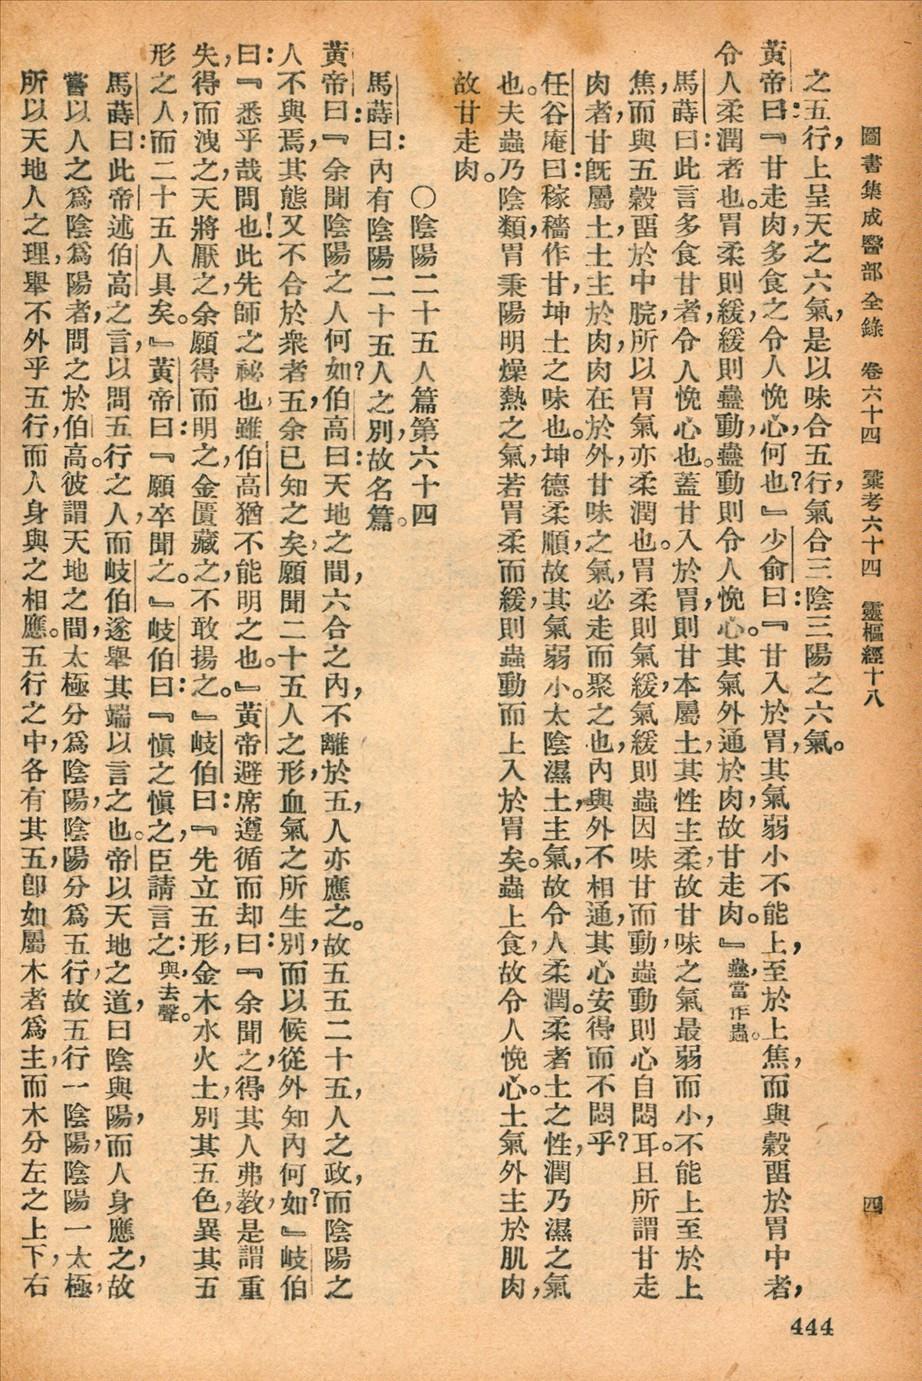 圖書集成醫部全錄　卷六十四　彙考六十四　靈樞經十八　四
之五行，上呈天之六氣，是以味合五行，氣合三陰三陽之六氣。
黃帝曰：『甘走肉，多食之令人悗心，何也？』少俞曰：『甘入於胃，其氣弱小，不能上至於上焦，而與穀畱於胃中者，
令人柔潤者也。胃柔則緩，緩則蠱動，蠱動則令人悗心。其氣外通於肉，故甘走肉。』蠱當作蟲。
馬蒔曰：此言多食甘者，令人悗心也。蓋甘入於胃，則甘本屬土，其性主柔，故甘味之氣最弱而小，不能上至於上
焦，而與五穀畱於中脘，所以胃氣亦柔潤也。胃柔則氣緩，氣緩則蟲因味甘而動，蟲動則心自悶耳。且所謂甘走
肉者，甘旣屬土，土主於肉，肉在於外，甘味之氣，必走而聚之也，內與外不相通，其心安得而不悶乎？
任谷庵曰：稼穡作甘，坤土之味也。坤德柔順，故其氣弱小。太陰濕土，主氣，故令人柔潤。柔者土之性，潤乃濕之氣
也。夫蟲乃陰類，胃秉陽明燥熱之氣，若胃柔而緩，則蟲動而上入於胃矣。蟲上食，故令人悗心。土氣外主於肌肉，
故甘走肉。
○陰陽二十五人篇第六十四
馬蒔曰：內有陰陽二十五人之別，故名篇。
黃帝曰：『余聞陰陽之人何如？伯高曰：天地之間，六合之內，不離於五，人亦應之。故五五二十五人之政，而陰陽之
人不與焉，其態又不合於衆者五，余已知之矣，願聞二十五人之形，血氣之所生，別而以候，從外知內何如？』岐伯
曰：『悉乎哉問也！此先師之祕也，雖伯高猶不能明之也。』黃帝避席遵循而却曰：『余聞之，得其人弗敎，是謂重
失，得而洩之，天將厭之，余願得而明之，金匱藏之，不敢揚之。』岐伯曰：『先立五形，金木水火土，別其五色，異其五
形之人，而二十五人具矣。』黃帝曰：『願卒聞之。』岐伯曰：『愼之愼之，臣請言之：與，去聲。
馬蒔曰：此帝述伯高之言，以問五行之人，而岐伯遂舉其端以言之也。帝以天地之道，曰陰與陽，而人身應之，故
嘗以人之爲陰爲陽者，問之於伯高。彼謂天地之間，太極分爲陰陽，陰陽分爲五行，故五行一陰陽，陰陽一太極，
所以天地人之理，舉不外乎五行，而人身與之相應。五行之中，各有其五，卽如屬木者爲主，而木分左之上下，右
444